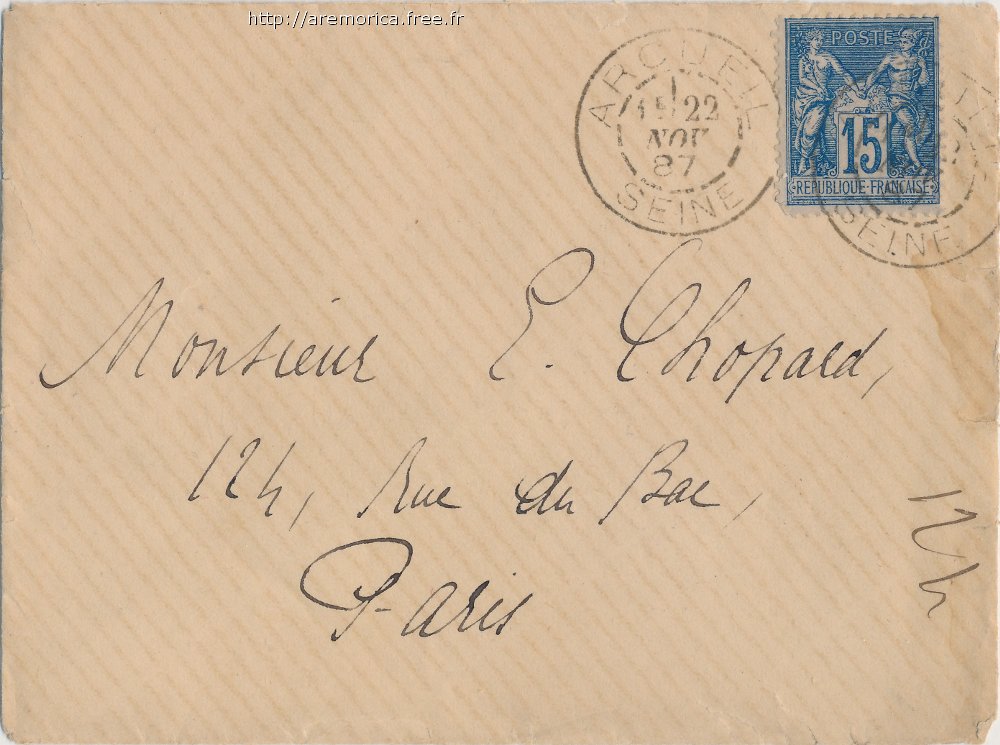 http://aremorica.free.fr
POSTE
15
REPUBLIQUE FRANÇAISE
ARCUEIL
22
NOV
87
SEINE
SEINE
Monsieur E. Chopard,
124, Rue du Bac,
Paris
124